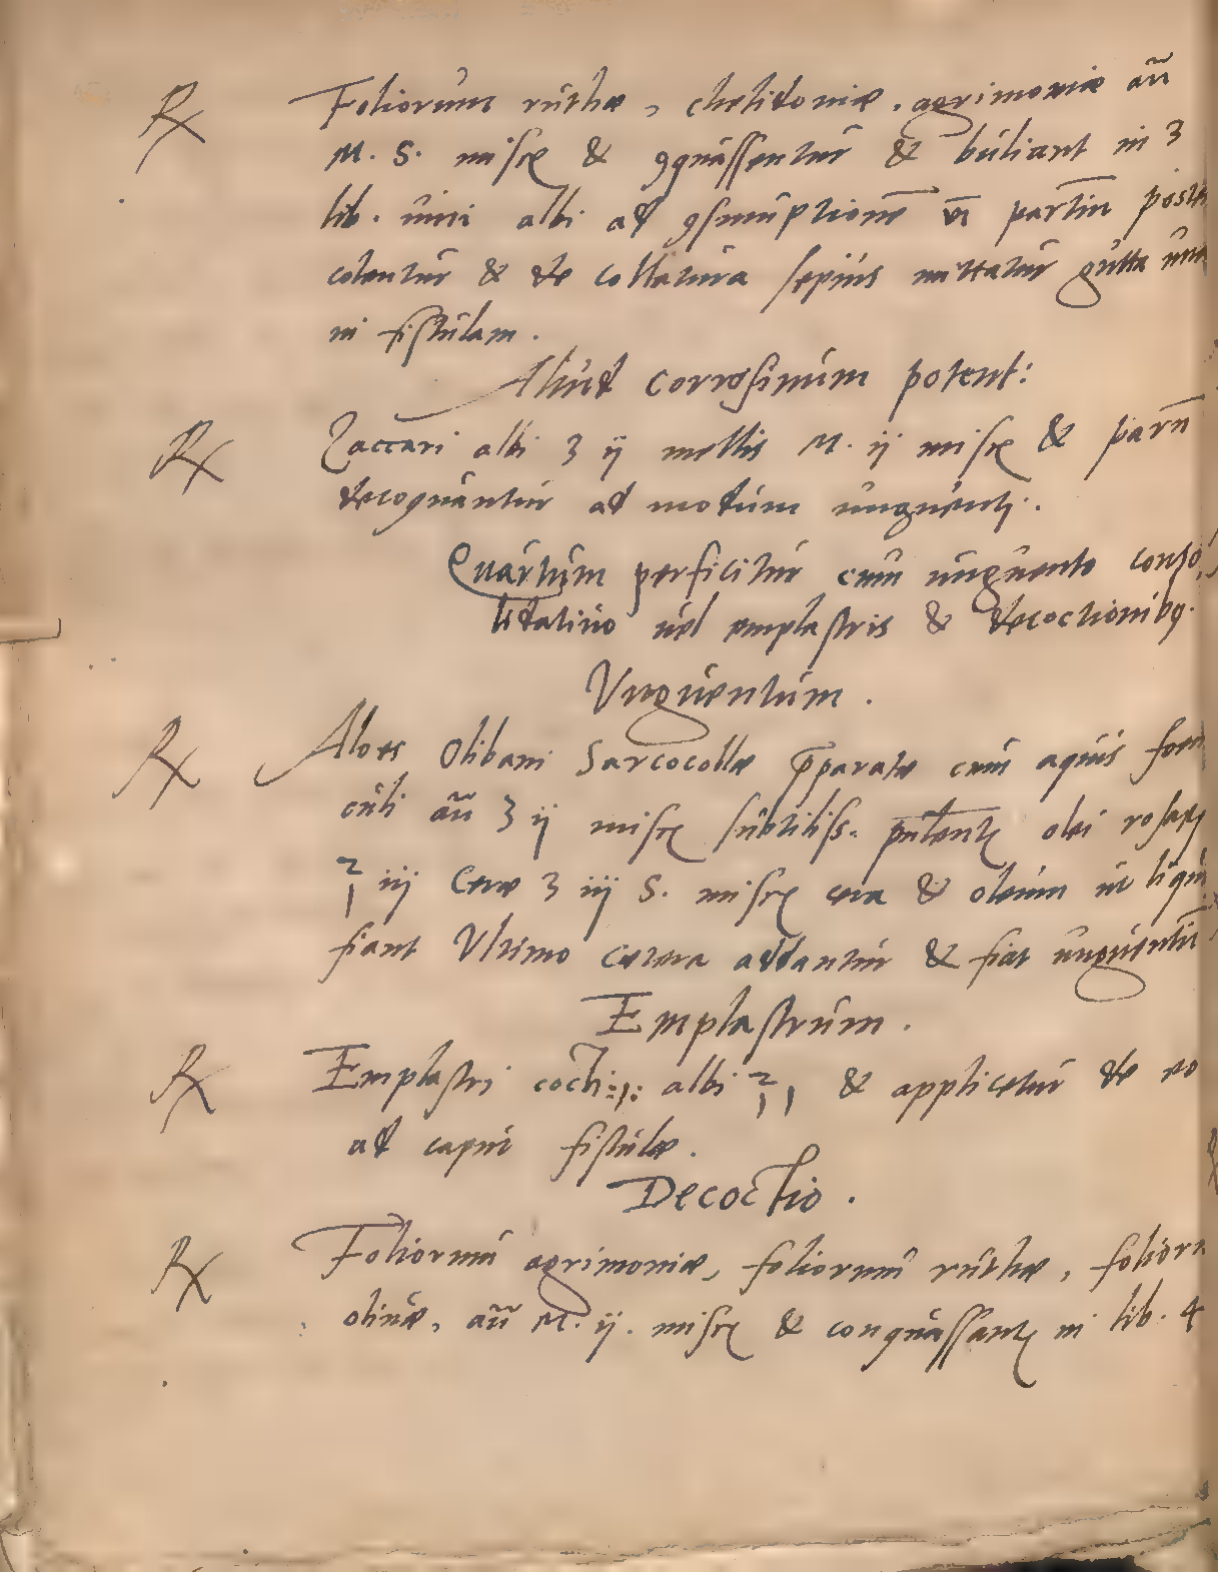 ℞ Foliorum ruthæ, chelidoniæ. agrimoniæ añ
M. S. misce & ꝯquassentur & buliant in 3
lib. uini albi ad ꝯsumptionē partiū
colentur & de collatura sepius mittatur gutta una
in fistulam.
Aliud corrosiuum potent:
℞ Zaccari albi ʒ ij mellis M. ij misce & parū
decoquantur ad modum unguenti.
Quartum perficitur cum unguento conso
lidatiuo uel emplastris & decoctionibꝰ.
Vnguentum.
℞ Aloes Olibani Sarcocollæ p̄paratæ cum aquis foeni
culi añ ʒ ij misce subtiliss. olei
℥ iij Ceræ ʒ iij S. misce cera & oleum ut liqui
fiant Vltimo cætera addantur & fiat unguentū
Emplastrum.
℞ Emplastri albi ℥ ı & applicetur de eo
ad caput fistulæ.
Decoctio.
℞ Foliorum agrimoniæ, foliorum ruthæ, folioru
oliuæ, añ M. ij. misce & conquassant in lib. 4